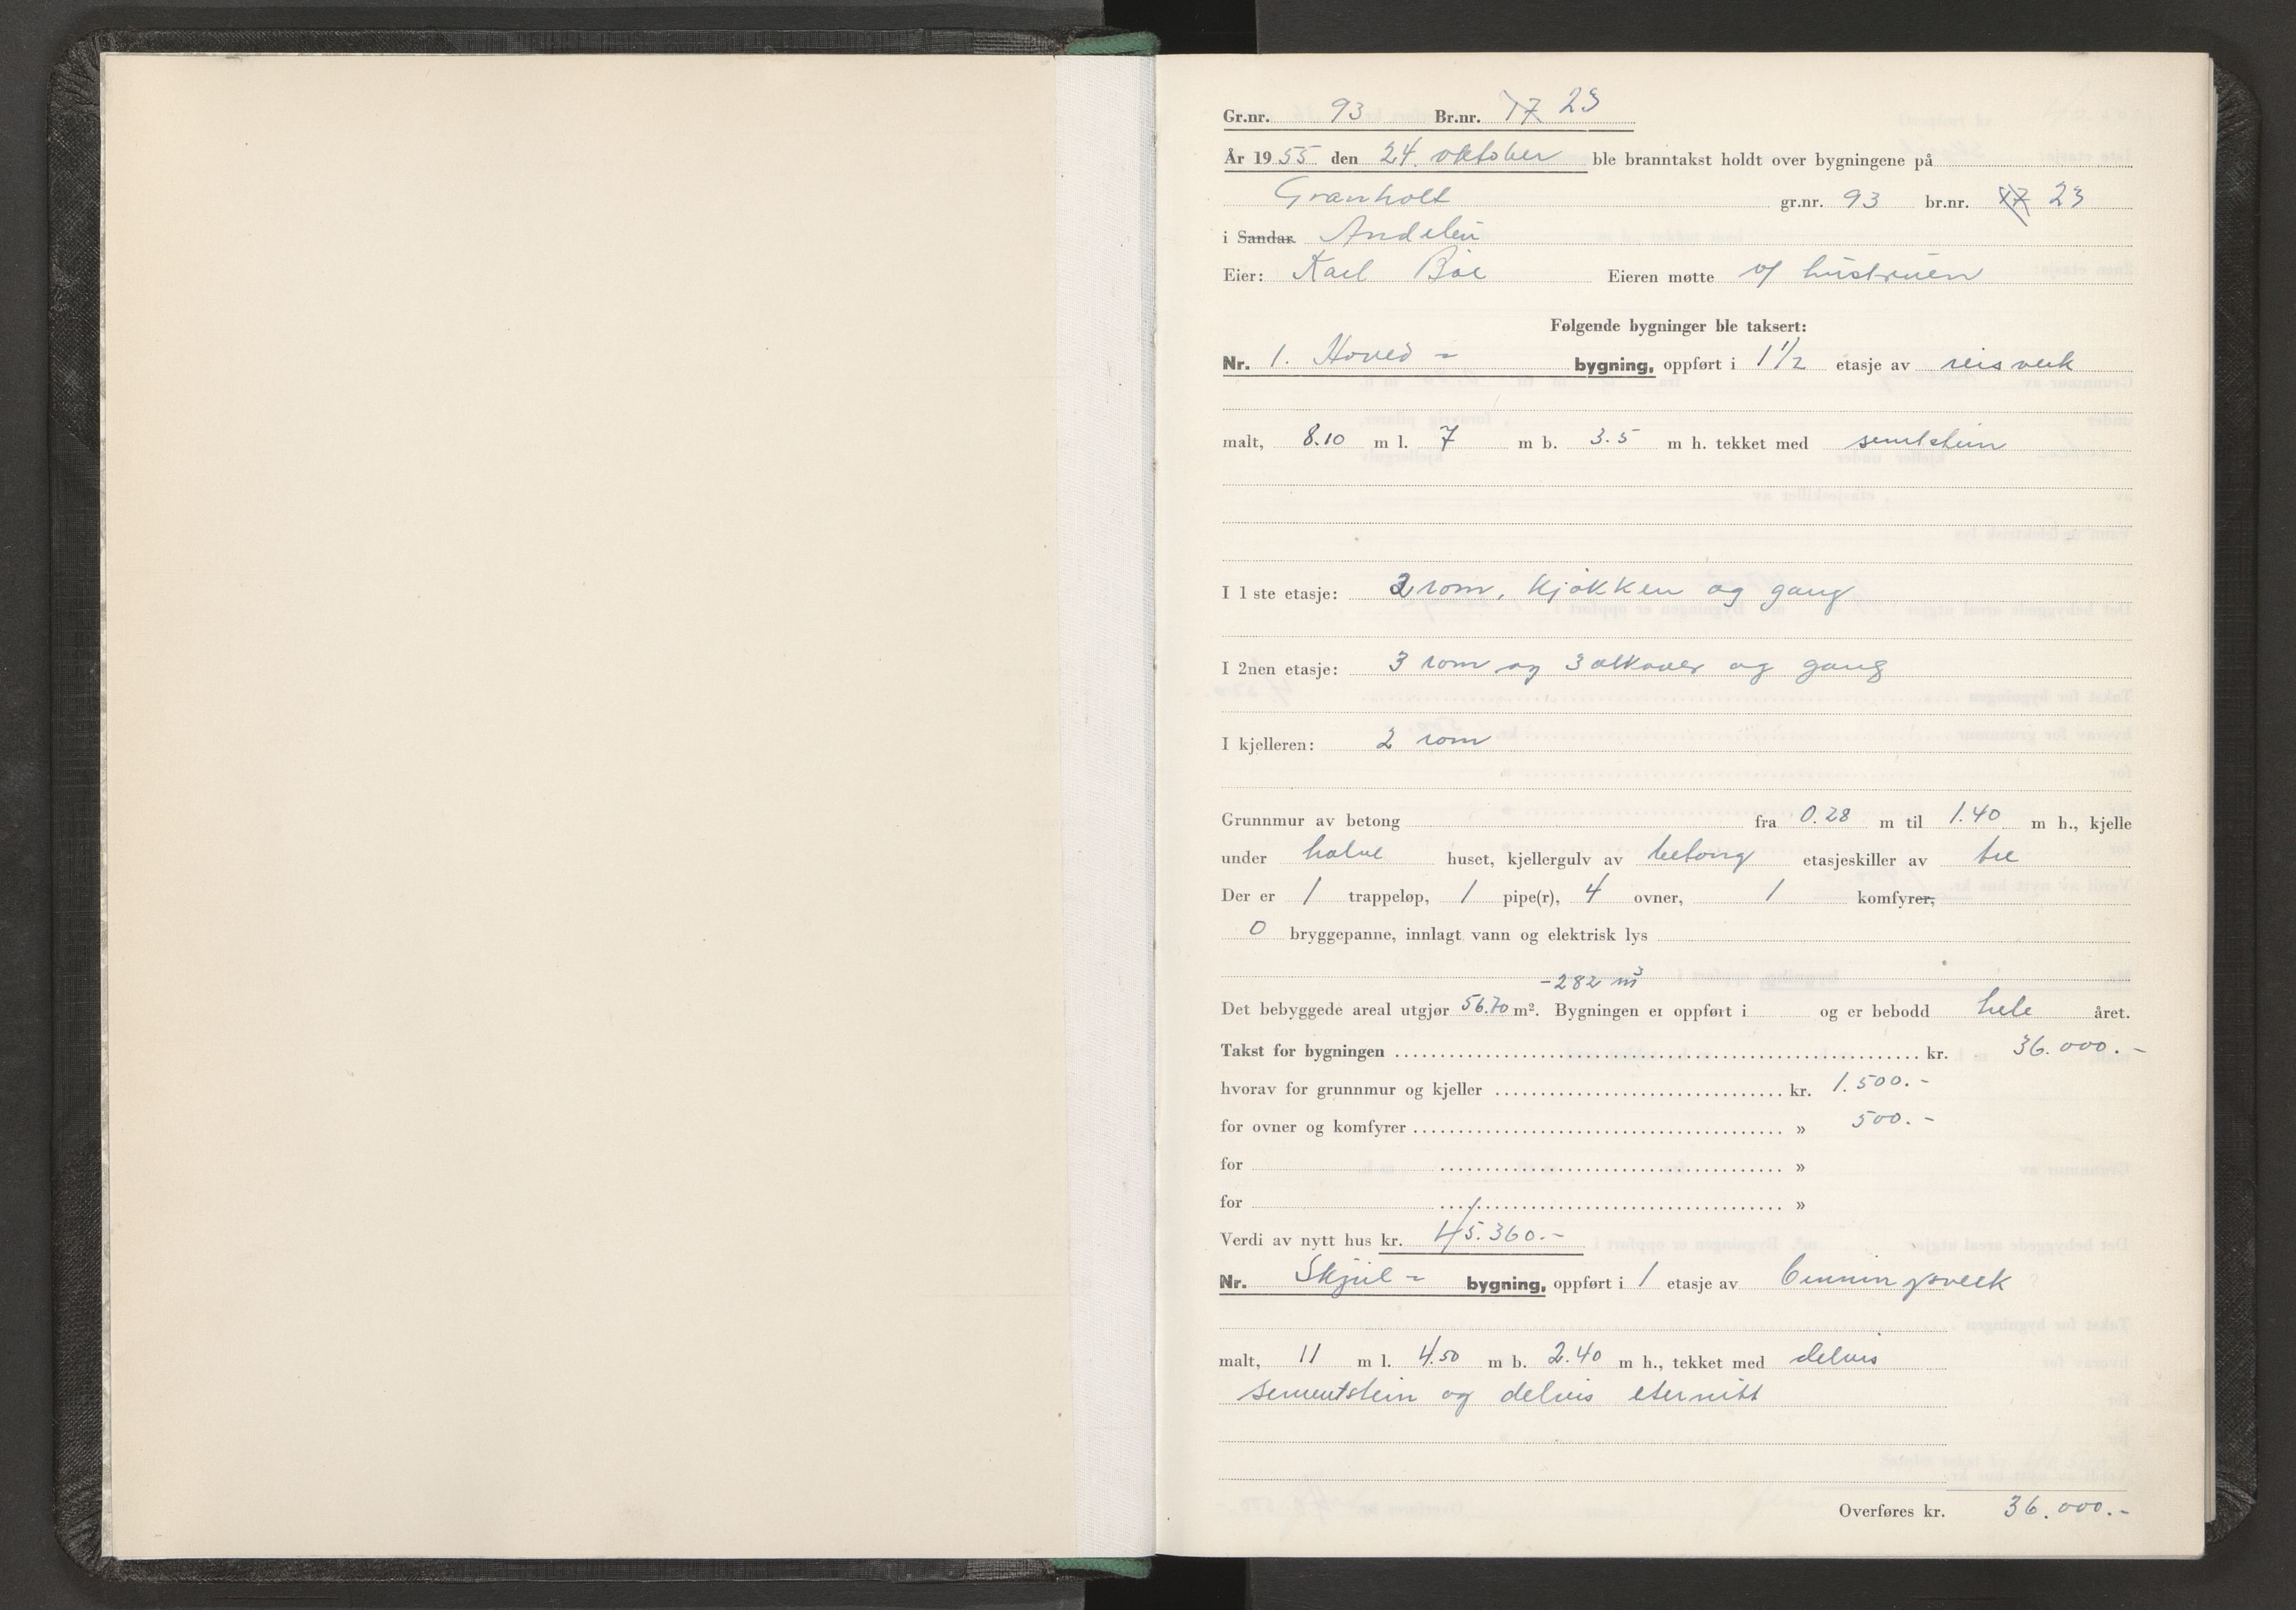 Gr.nr. 93 Br.nr. 17 23
År 1955 den 24. oktober ble branntakst holdt over bygningene på
Granholt gr.nr. 93 br.nr. 17 23
i Sandar Andebu
Eier: Karl Bøe Eieren møtte v/ hustruen
Følgende bygninger ble taksert:
Nr. 1. Hoved - bygning, oppført i 1 1/2 etasje av reisverk
malt, 8.10 m l. 7 m b. 3.5 m h. tekket med
I 1ste etasje: 2 rom, kjøkken og gang
I 2nen etasje: 3 rom og 3 alkover og gang
I kjelleren: 2 rom
Grunnmur av betong fra 0.28 m til 1.40 m h., kjelle
under halve huset, kjellergulv av betong etasjeskiller av tre
Der er 1 trappeløp, 1 pipe(r), 4 ovner, 1 komfyrer,
0 bryggepanne, innlagt vann og elektrisk lys
-282 m³
Det bebyggede areal utgjør 56.70 m². Bygningen er oppført i og er bebodd hele året.
Takst for bygningen kr. 36.000.-
hvorav for grunnmur og kjeller kr. 1.500.-
for ovner og komfyrer » 500.-
for »
for »
Verdi av nytt hus kr. 45.360.-
Nr. Skjul - bygning, oppført i 1 etasje av binningsverk
malt, 11 m l. 4.50 m b. 2.40 m h., tekket med delvis
sementstein og delvis eternitt
Overføres kr. 36.000.-